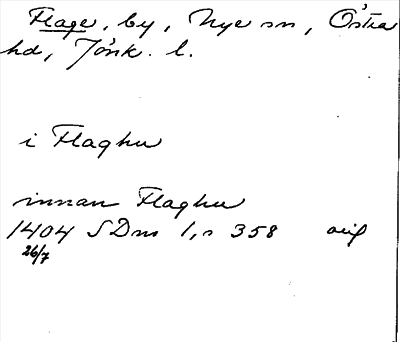 Flage, by, Nye sn, Östra
hd, Jönk. l.
i Flaghu
innan Flaghu
1404 SDns 1, s 358 orig
26/7